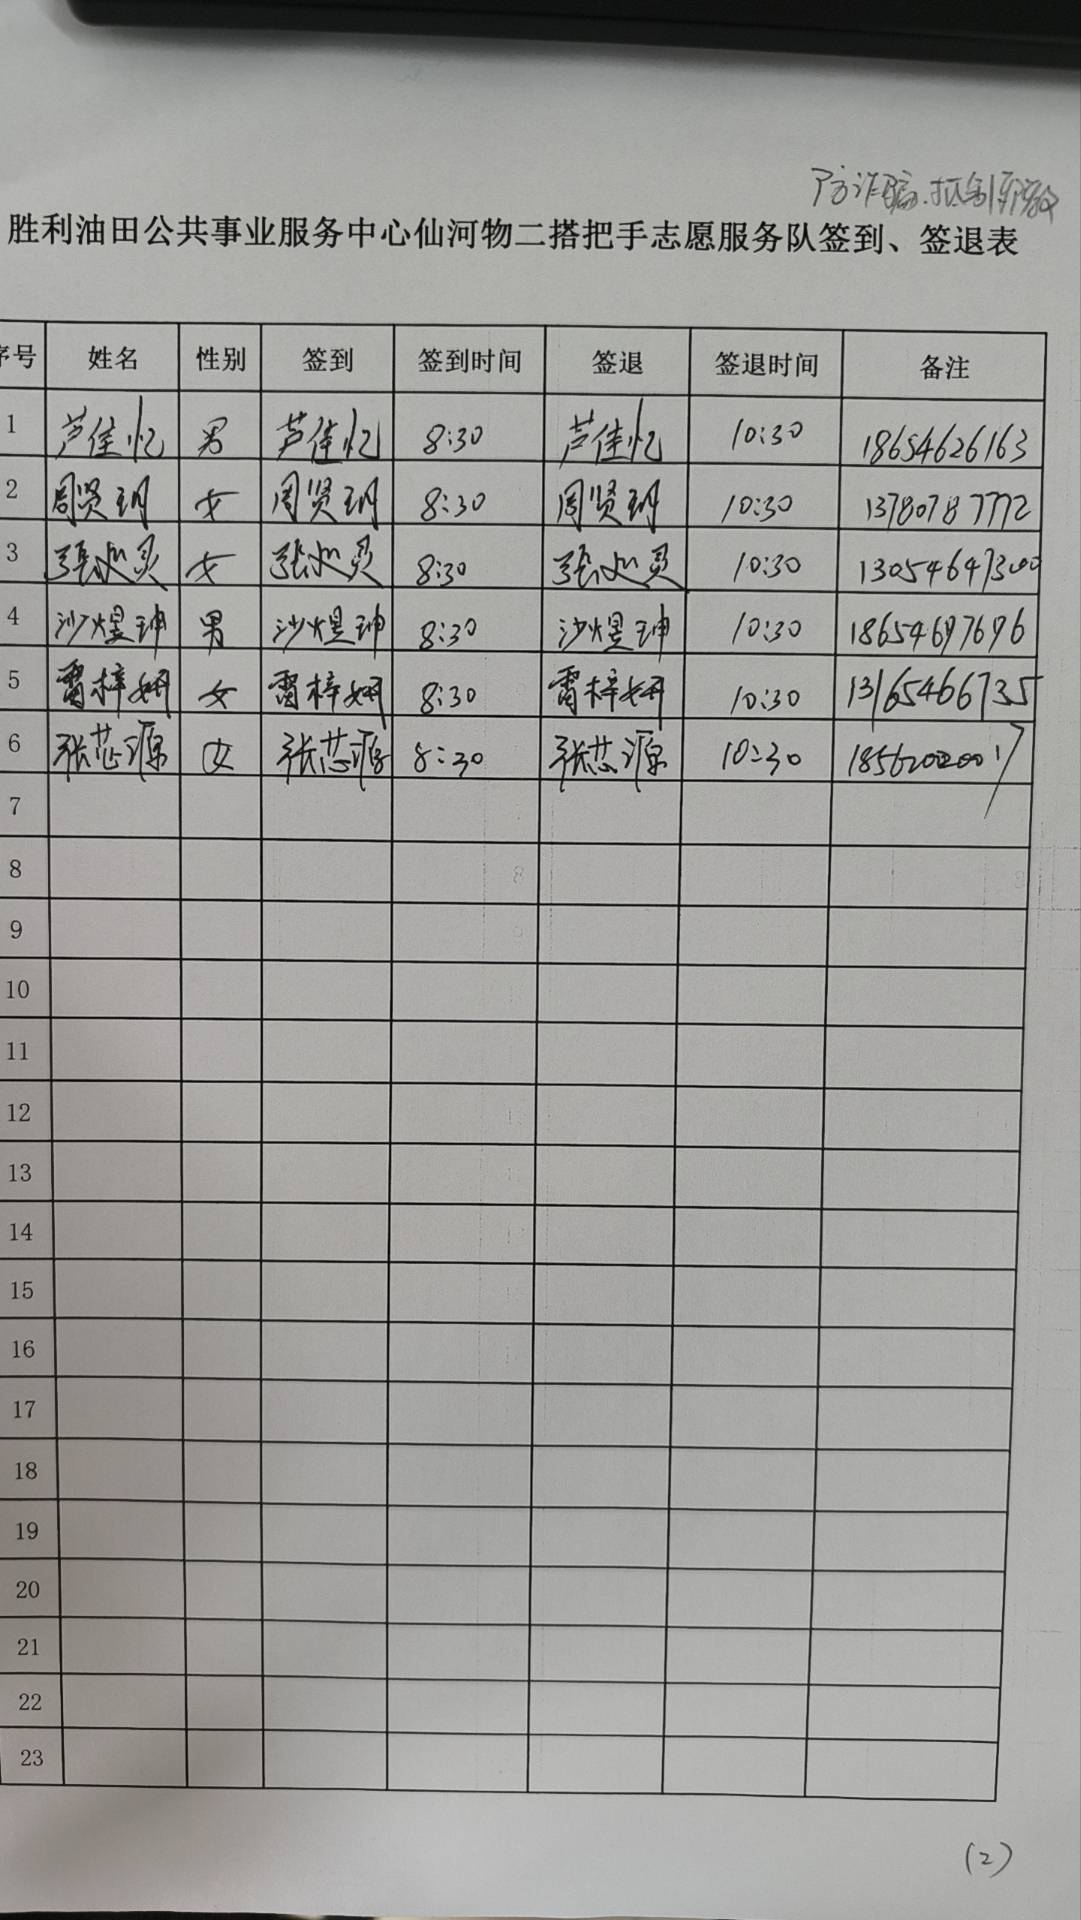 防诈骗.抵制邪教
胜利油田公共事业服务中心仙河物二搭把手志愿服务队签到、签退表
序号 姓名 性别 签到 签到时间 签退 签退时间 备注
1 芦佳忆 男 芦佳忆 8:30 芦佳忆 10:30 18654626163
2 周贤玥 女 周贤玥 8:30 周贤玥 10:30 13780787772
3 张 灵 女 张 灵 8:30 张 灵 10:30 13054647300
4 沙煜珅 男 沙煜珅 8:30 沙煜珅 10:30 18654697696
5 雷梓妍 女 雷梓妍 8:30 雷梓妍 10:30 13165466735
6 张芯源 女 张芯源 8:30 张芯源 10:30 18562020017
7
8
9
10
11
12
13
14
15
16
17
18
19
20
21
22
23
(2)